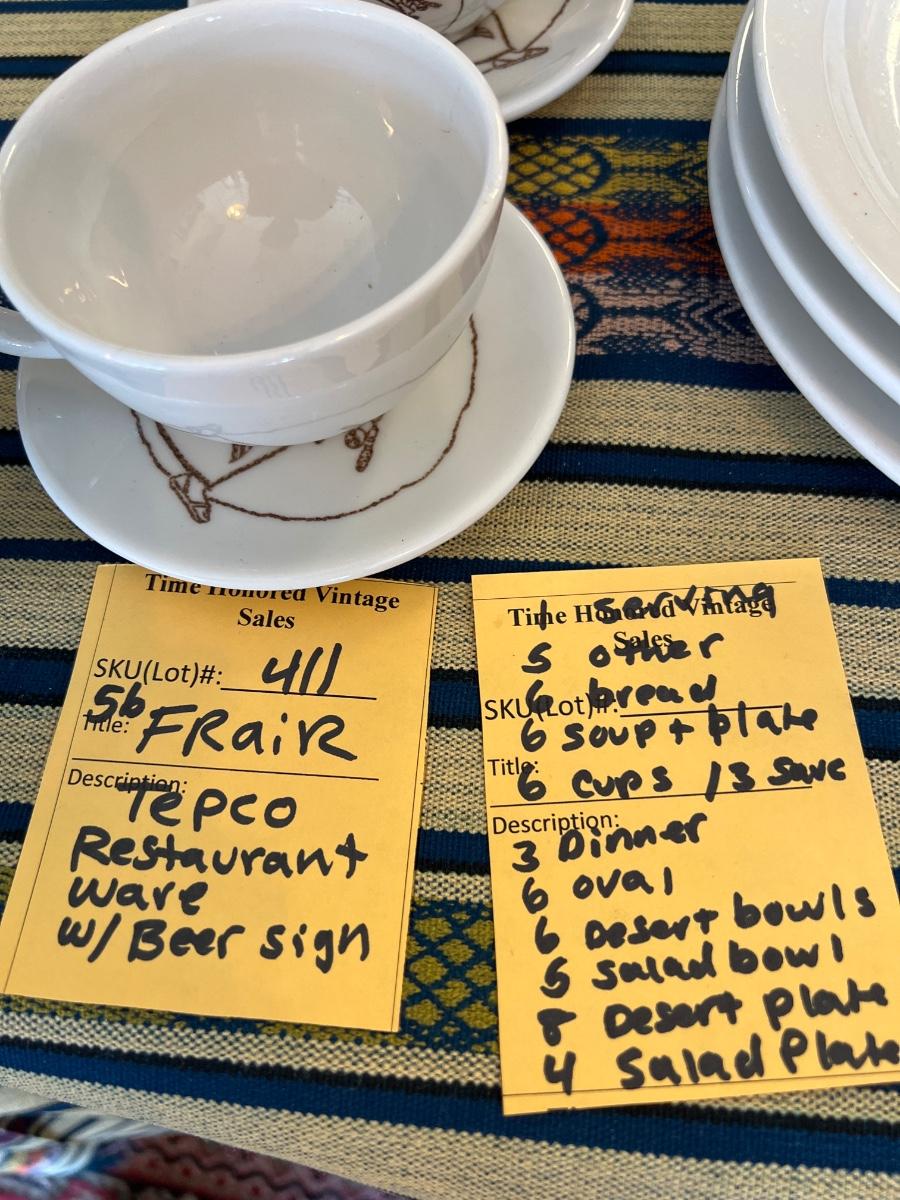 Time Honored Vintage
Sales
SKU(Lot)#: 411
56
Title: FRaiR
Description:
Tepco
Restaurant
ware
w/ Beer sign
1 serving
Time Honored Vintage
Sales
5 other
6 bread
SKU(Lot)#:
6 soup + plate
Title:
6 cups / 3 Save
Description:
3 Dinner
6 oval
6 Desert bowls
5 salad bowl
8 Desert Plate
4 Salad Plate